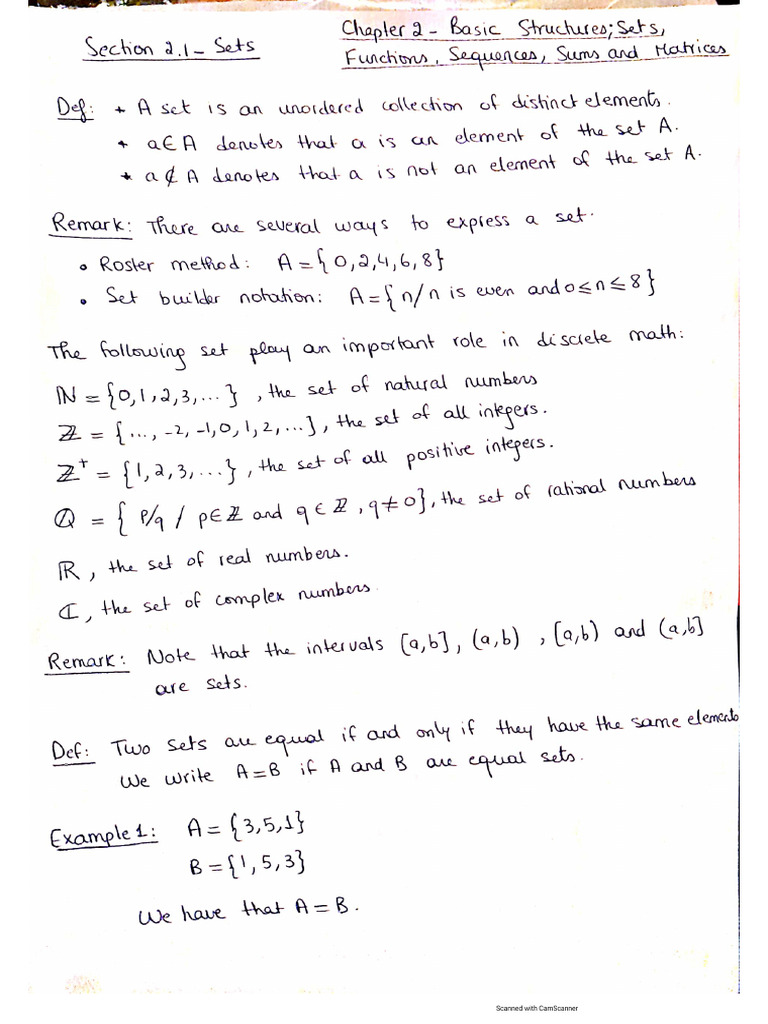 Section 2.1 - Sets
Chapter 2 - Basic Structures; Sets,
Functions, Sequences, Sums and Matrices
Def: * A set is an unordered collection of distinct elements.
* a∈A denotes that a is an element of the set A.
* a∉A denotes that a is not an element of the set A.
Remark: There are several ways to express a set.
• Roster method: A = {0,2,4,6,8}
• Set builder notation: A = {n/n is even and 0≤n≤8}
The following set play an important role in discrete math:
ℕ = {0,1,2,3,...}, the set of natural numbers
ℤ = {..., -2, -1, 0, 1, 2, ...}, the set of all integers.
ℤ⁺ = {1,2,3,...}, the set of all positive integers.
ℚ = { p/q / p∈ℤ and q∈ℤ, q≠0}, the set of rational numbers
ℝ, the set of real numbers.
ℂ, the set of complex numbers.
Remark: Note that the intervals [a,b], (a,b), [a,b) and (a,b]
are sets.
Def: Two sets are equal if and only if they have the same elements
We write A=B if A and B are equal sets.
Example 1: A = {3,5,1}
B = {1,5,3}
We have that A=B.
Scanned with CamScanner